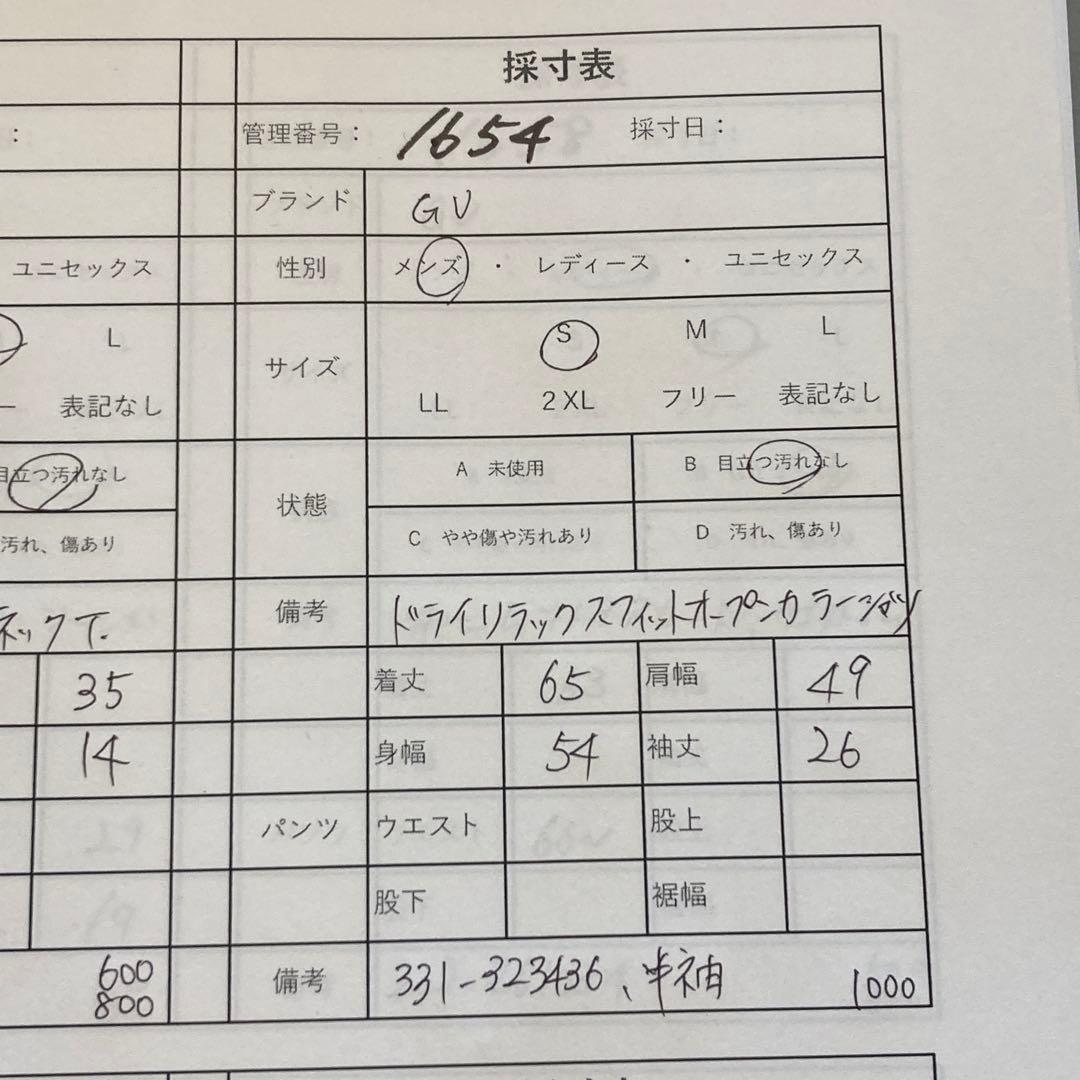 採寸表
: 管理番号： 1654 採寸日：
ブランド GU
ユニセックス 性別 メンズ ・ レディース ・ ユニセックス
L サイズ S M L
表記なし LL 2XL フリー 表記なし
目立つ汚れなし 状態 A 未使用 B 目立つ汚れなし
汚れ、傷あり C やや傷や汚れあり D 汚れ、傷あり
ネックT. 備考 ドライリラックスフィットオープンカラーシャツ
35 着丈 65 肩幅 49
14 身幅 54 袖丈 26
パンツ ウエスト 股上
股下 裾幅
600
800 備考 331-323436、半袖 1000